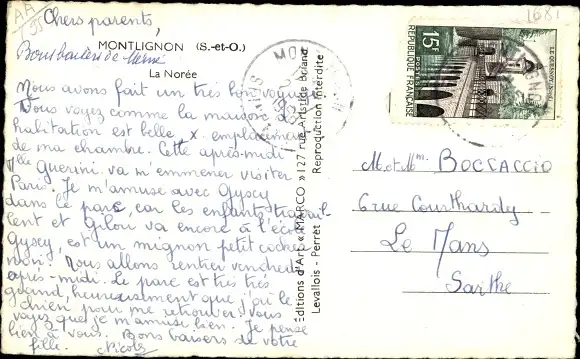 Chers parents,
Bons baisers de
MONTLIGNON (S.-et-O.)
La Norée
Nous avons fait un très bon voyage.
Vous voyez comme la maison d'
habitation est belle, x emplacement
de ma chambre. Cette après-midi
Mlle Guerini va m'emmener visiter
Paris. Je m'amuse avec Gyscy
dans le parc, car les enfants travail
lent et Gilou va encore à l'école
Gyscy, est un mignon petit cocker
noir. Nous allons rentrer vendredi
après-midi. Le parc est très très
grand, heureusement que j'ai le
chien pour me retrouver. Vous
voyez que je m'amuse bien. Je pense
bien à vous. Bons baisers de votre
fille. Nicole
Editions d'Art « MARCO » 127 rue Aristide Briand
Levallois - Perret Reproduction interdite
15F
REPUBLIQUE FRANÇAISE
LE QUESNOY
1681
M. et Mme BOCCACCIO
6 rue Courthardy
Le Mans
Sarthe